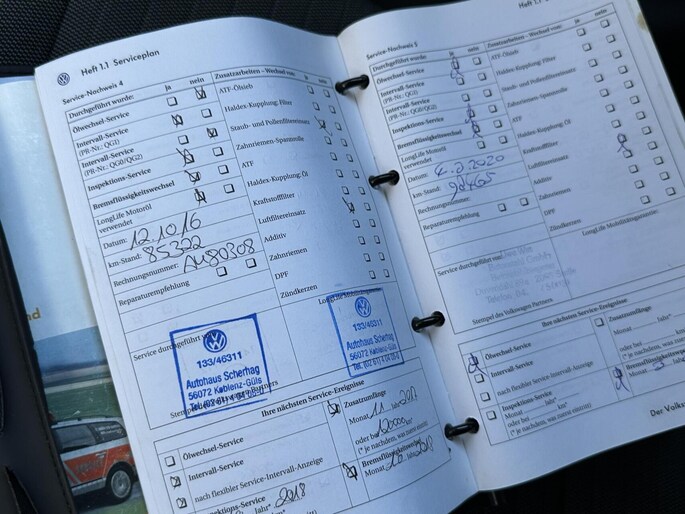 Heft 1.1 Serviceplan
Service-Nachweis 4
Durchgeführt wurde: ja nein
Ölwechsel-Service
Intervall-Service
(PR-Nr.: QG1)
Intervall-Service
(PR-Nr.: QG0/QG2)
Inspektions-Service
Bremsflüssigkeitswechsel
LongLife Motoröl
verwendet
Datum: 12.10.16
km-Stand: 85322
Rechnungsnummer: AU80308
Reparaturempfehlung
Zusatzarbeiten – Wechsel von: ja nein
ATF-Ölsieb
Haldex-Kupplung Filter
Staub- und Pollenfiltereinsatz
Zahnriemen-Spannrolle
ATF
Haldex-Kupplung Öl
Kraftstofffilter
Luftfiltereinsatz
Additiv
Zahnriemen
DPF
Zündkerzen
LongLife Mobilitätsgarantie:
Service durchgeführt
133/46311
Autohaus Scherhag
56072 Koblenz-Güls
133/46311
Autohaus Scherhag
56072 Koblenz-Güls
Ihre nächsten Service-Ereignisse
Ölwechsel-Service
Intervall-Service
nach flexibler Service-Intervall-Anzeige
Jahr* 2018
Zusatzumfänge
Monat 11 Jahr 2017
oder bei 120000 km*
(* je nachdem, was zuerst eintritt)
Bremsflüssigkeitswechsel
Monat
2018
Service-Nachweis 5
Durchgeführt wurde: ja nein
Ölwechsel-Service
Intervall-Service
(PR-Nr.: QG1)
Intervall-Service
(PR-Nr.: QG0/QG2)
Inspektions-Service
Bremsflüssigkeitswechsel
LongLife Motoröl
verwendet
Datum:
2020
km-Stand:
Rechnungsnummer:
Reparaturempfehlung
Zusatzarbeiten – Wechsel von: ja nein
ATF-Ölsieb
Haldex-Kupplung Filter
Staub- und Pollenfiltereinsatz
Zahnriemen-Spannrolle
ATF
Haldex-Kupplung Öl
Kraftstofffilter
Luftfiltereinsatz
Additiv
Zahnriemen
DPF
Zündkerzen
LongLife Mobilitätsgarantie:
Service durchgeführt von:
Stempel des Volkswagen Partners
Ihre nächsten Service-Ereignisse
Ölwechsel-Service
Intervall-Service
nach flexibler Service-Intervall-Anzeige
Inspektions-Service
Monat Jahr*
oder bei km*
(* je nachdem, was zuerst eintritt)
Zusatzumfänge
Monat Jahr*
oder bei km*
(* je nachdem, was zuerst eintritt)
Bremsflüssigkeitswechsel
Monat
Der Volks